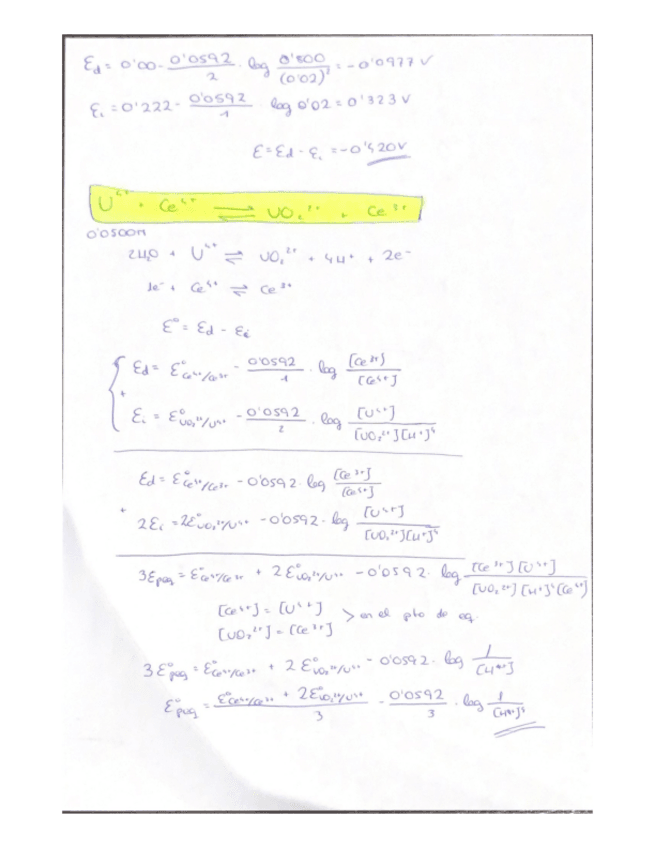 Ɛd = 0'00 - 0'0592/2 · log 0'800/(0'02)² = -0'0977 V
Ɛi = 0'222 - 0'0592/1 · log 0'02 = 0'323 V
Ɛ = Ɛd - Ɛi = -0'420V
U⁴⁺ + Ce⁴⁺ ⇌ UO₂²⁺ + Ce³⁺
0'0500M
2H₂O + U⁴⁺ ⇌ UO₂²⁺ + 4H⁺ + 2e⁻
1e⁻ + Ce⁴⁺ ⇌ Ce³⁺
Ɛ° = Ɛd - Ɛi
Ɛd = Ɛ°Ce⁴⁺/Ce³⁺ - 0'0592/1 · log [Ce³⁺]/[Ce⁴⁺]
+
Ɛi = Ɛ°UO₂²⁺/U⁴⁺ - 0'0592/2 · log [U⁴⁺]/[UO₂²⁺][H⁺]⁴
Ɛd = Ɛ°Ce⁴⁺/Ce³⁺ - 0'0592 · log [Ce³⁺]/[Ce⁴⁺]
+
2Ɛi = 2Ɛ°UO₂²⁺/U⁴⁺ - 0'0592 · log [U⁴⁺]/[UO₂²⁺][H⁺]⁴
3Ɛpeq = Ɛ°Ce⁴⁺/Ce³⁺ + 2Ɛ°UO₂²⁺/U⁴⁺ - 0'0592 · log [Ce³⁺][U⁴⁺]/[UO₂²⁺][H⁺]⁴[Ce⁴⁺]
[Ce⁴⁺] = [U⁴⁺]
[UO₂²⁺] = [Ce³⁺] > en el pto de eq.
3Ɛ°peq = Ɛ°Ce⁴⁺/Ce³⁺ + 2Ɛ°UO₂²⁺/U⁴⁺ - 0'0592 · log 1/[H⁺]
Ɛ°peq = Ɛ°Ce⁴⁺/Ce³⁺ + 2Ɛ°UO₂²⁺/U⁴⁺/3 - 0'0592/3 · log 1/[H⁺]⁴